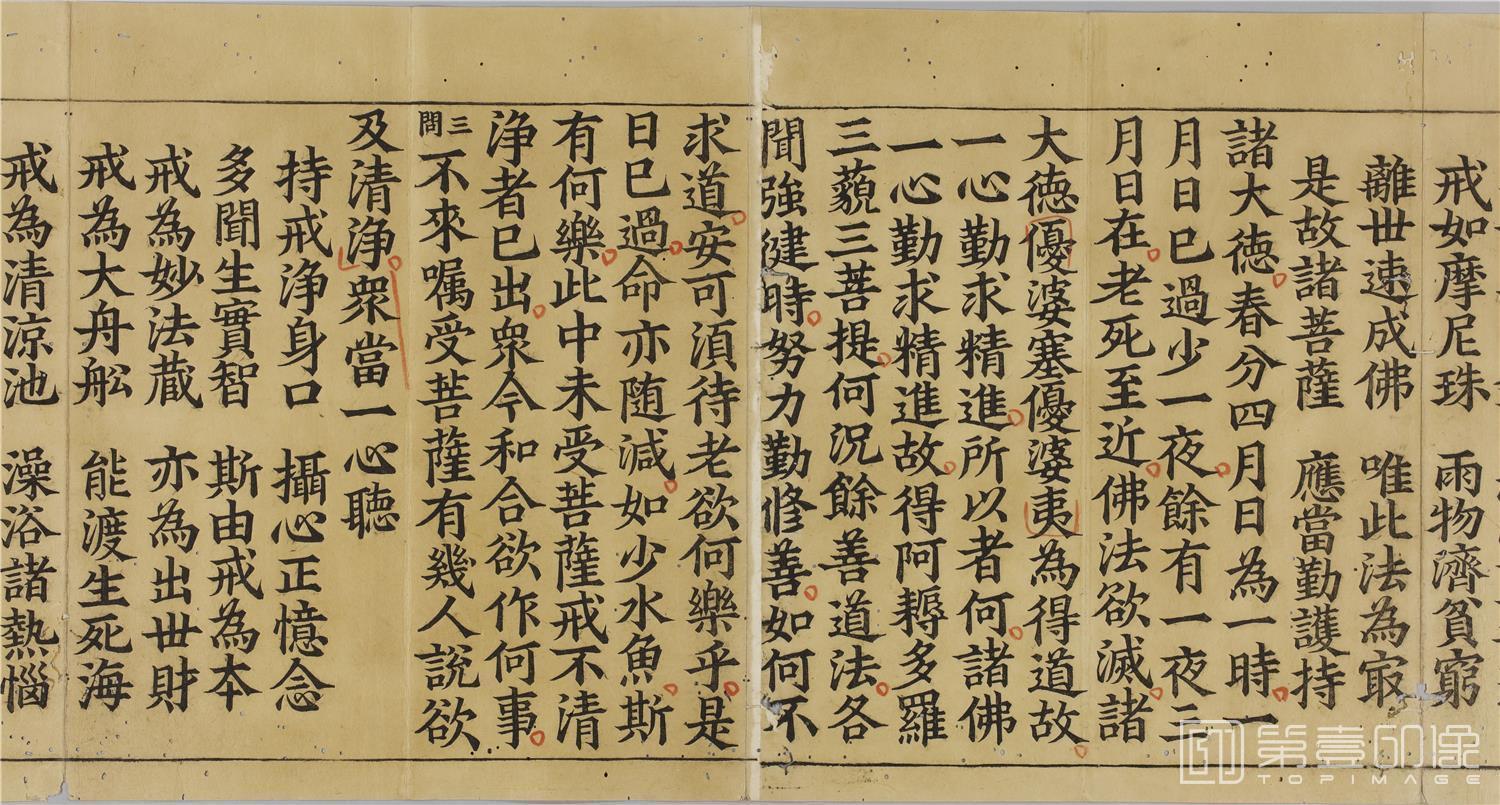 戒如摩尼珠　雨物濟貧窮
離世速成佛　唯此法為㝡
是故諸菩薩　應當勤護持
諸大德春分四月日為一時一
月日已過少一夜餘有一夜三
月日在老死至近佛法欲滅諸
大德優婆塞優婆夷為得道故
一心勤求精進所以者何諸佛
一心勤求精進故得阿耨多羅
三藐三菩提何況餘善道法各
聞強健時努力勤修善如何不
求道安可須待老欲何樂乎是
日已過命亦随減如少水魚斯
有何樂此中未受菩薩戒不清
淨者已出衆今和合欲作何事
三問不來囑受菩薩有幾人說欲
及清淨衆當一心聽
持戒淨身口　攝心正憶念
多聞生實智　斯由戒為本
戒為妙法蔵　亦為出世財
戒為大舟舩　能渡生死海
戒為清涼池　澡浴諸熱惱
第壹印像
TOPIMAGE